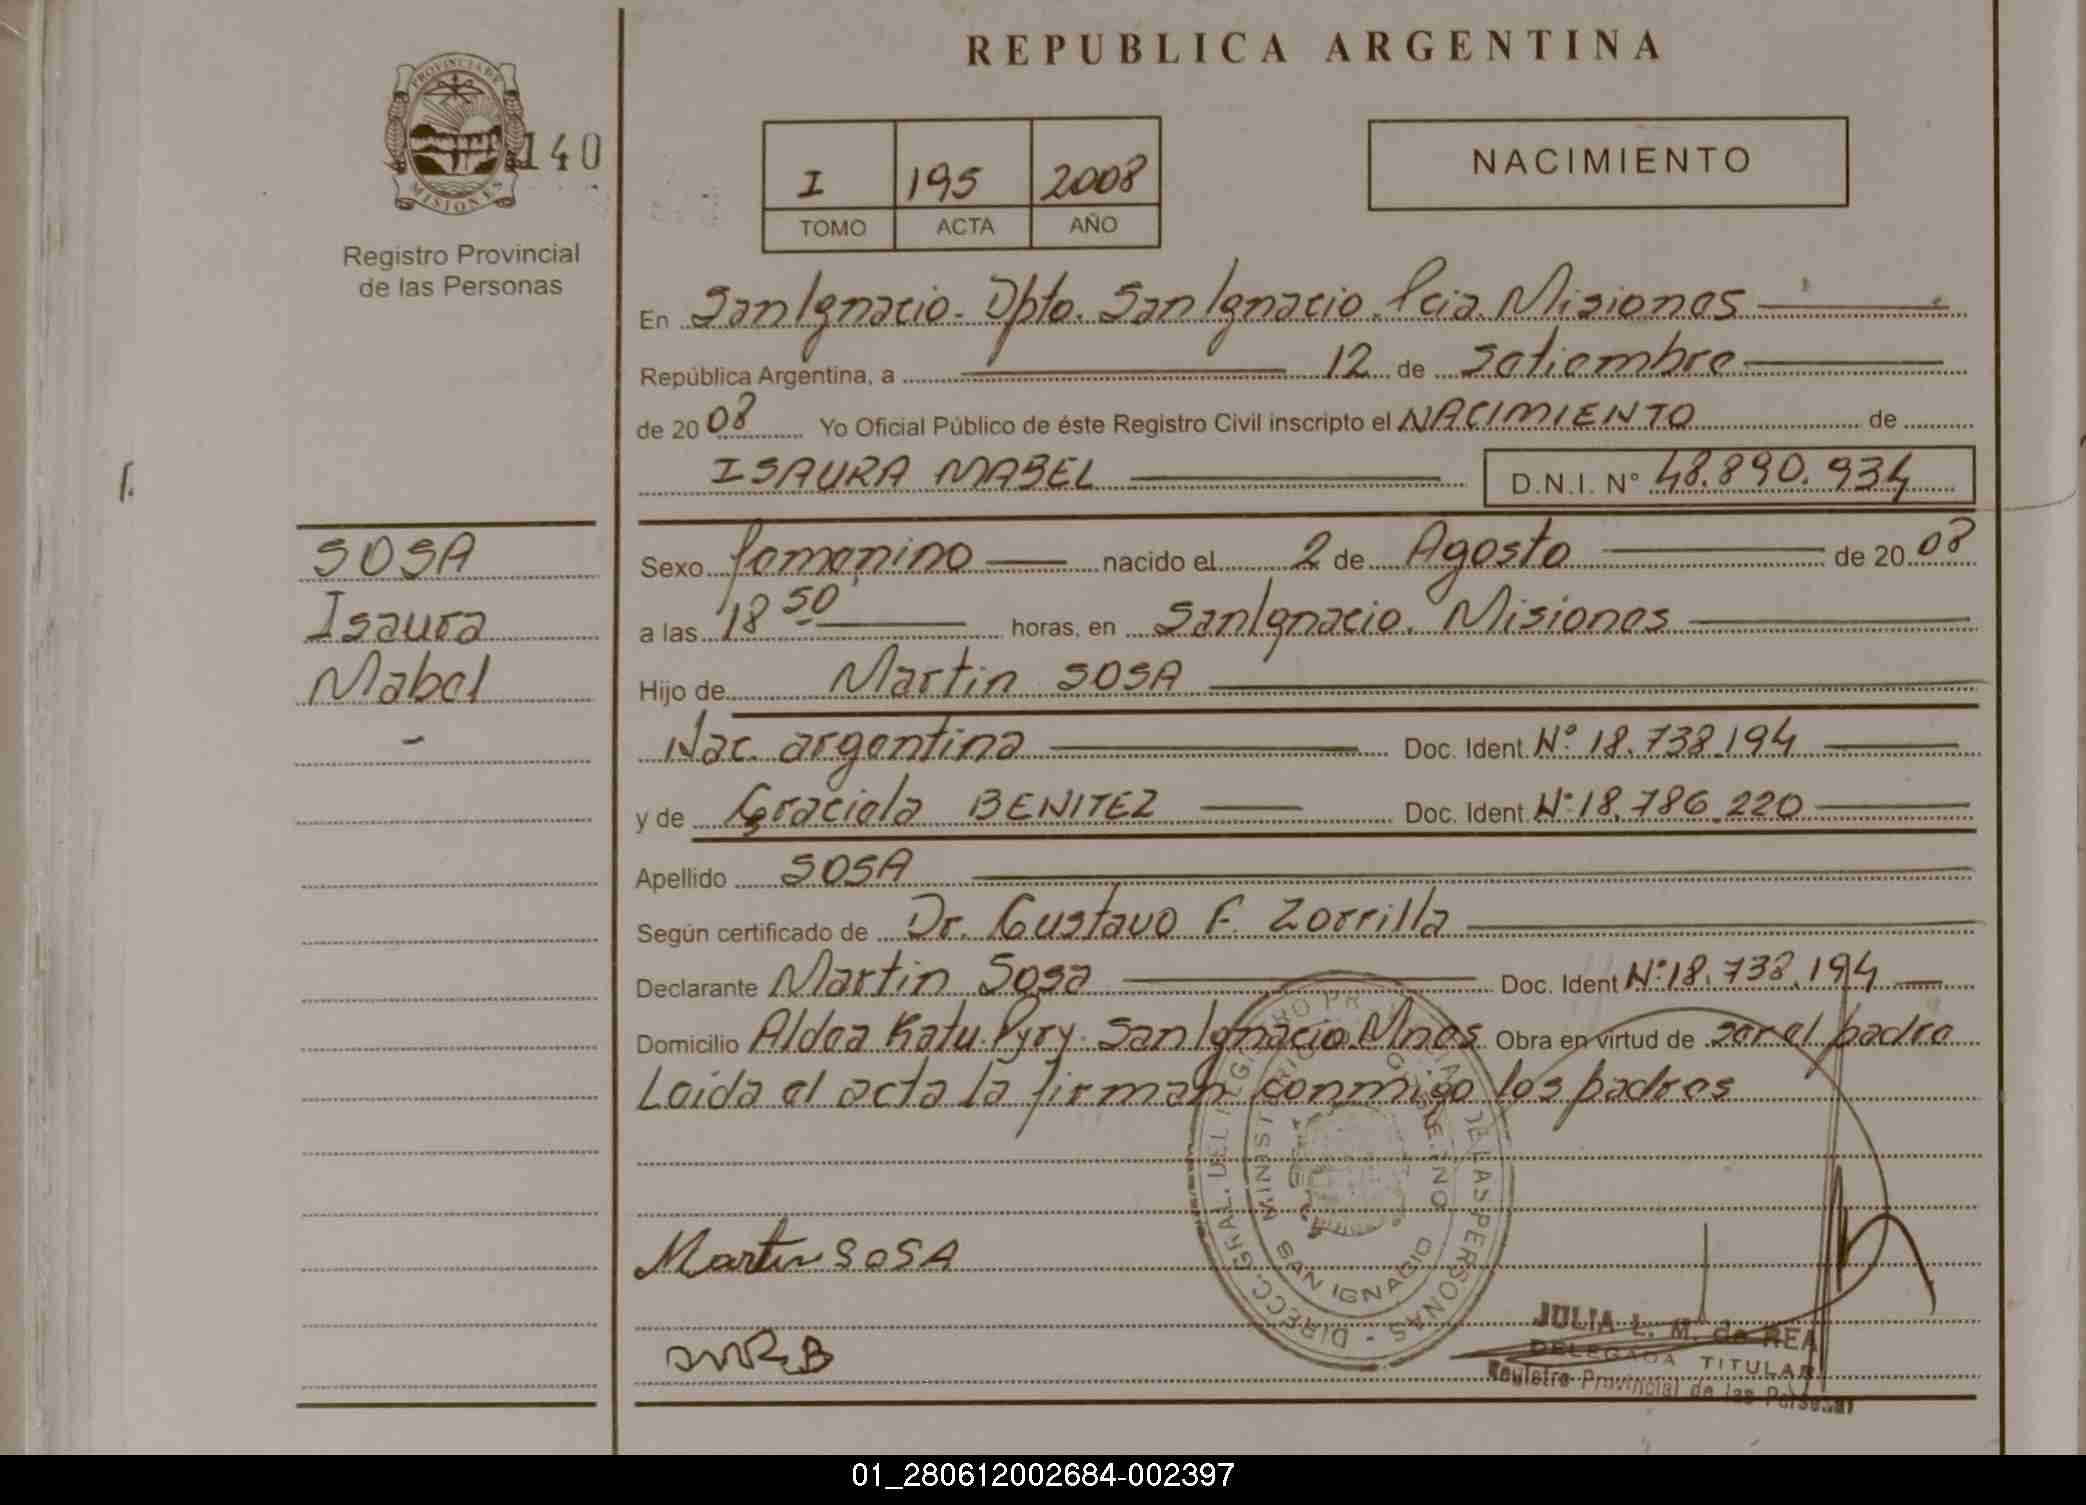 REPUBLICA ARGENTINA
PROVINCIA DE
MISIONES
140
Registro Provincial
de las Personas
I 195 2008
TOMO ACTA AÑO
NACIMIENTO
En San Ignacio. Dpto. San Ignacio. Pcia. Misiones
República Argentina, a 12 de Setiembre
de 2008 Yo Oficial Público de éste Registro Civil inscripto el NACIMIENTO de
ISAURA MABEL D.N.I. N° 48.890.934
SOSA
Isaura
Mabel
Sexo femenino nacido el 2 de Agosto de 2008
a las 18 50 horas, en San Ignacio. Misiones
Hijo de Martin SOSA
Nac. argentina Doc. Ident. N° 18.738.194
y de Graciela BENITEZ Doc. Ident. N° 18.786.220
Apellido SOSA
Según certificado de Dr. Gustavo F. Zorrilla
Declarante Martin Sosa Doc. Ident N° 18.738.194
Domicilio Aldea Katu Pyry. San Ignacio. Mnes Obra en virtud de ser el padre
Leida el acta la firman conmigo los padres
DIRECC. GRAL. DEL REGISTRO PROVINCIAL DE LAS PERSONAS -
MINISTERIO DE GOBIERNO
SAN IGNACIO
Martin SOSA
JULIA L. M. de REA
DELEGADA TITULAR
Registro Provincial de las Personas
01_280612002684-002397